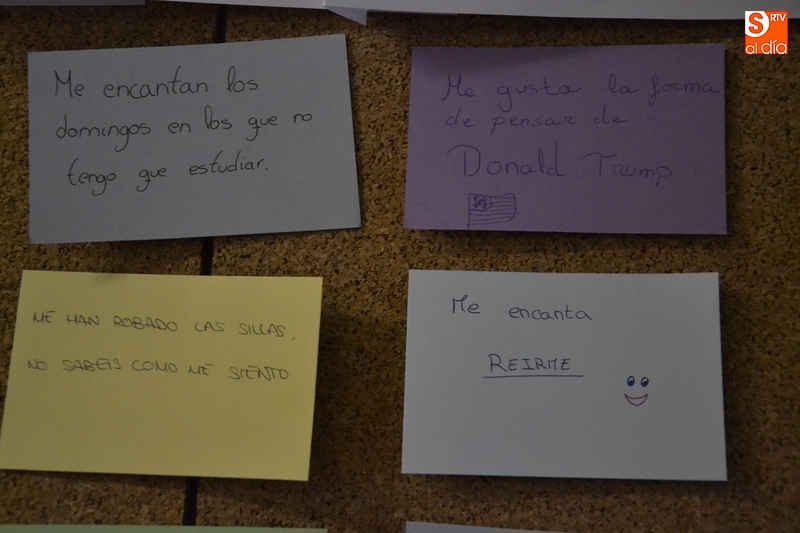 Me encantan los
domingos en los que no
tengo que estudiar.
Me gusta la forma
de pensar de
Donald Trump
ME HAN ROBADO LAS SILLAS,
NO SABEIS COMO ME SIENTO
Me encanta
REIRME
S RTV
al día